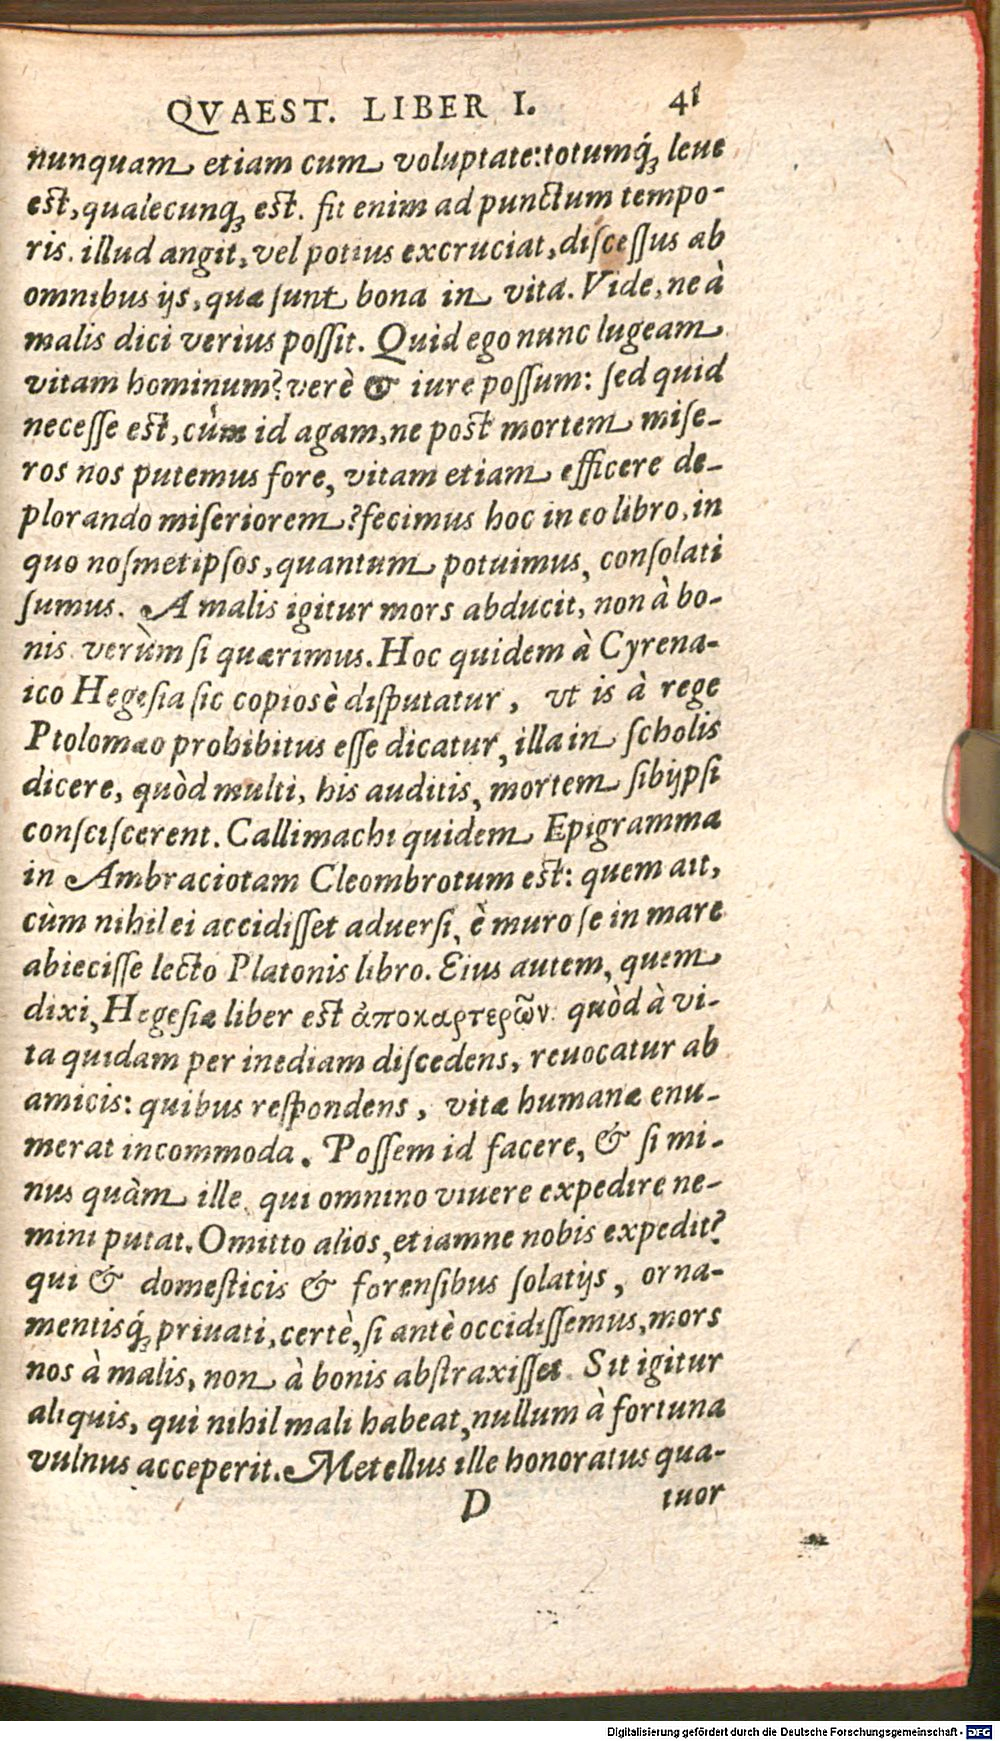 QVAEST. LIBER I. 41
nunquam etiam cum voluptate: totumq́ꝫ leue
est, qualecunqꝫ est. fit enim ad punctum tempo-
ris. illud angit, vel potius excruciat, discessus ab
omnibus ijs, quæ sunt bona in vita. Vide, ne à
malis dici verius possit. Quid ego nunc lugeam
vitam hominum? verè & iure possum: sed quid
necesse est, cùm id agam, ne post mortem mise-
ros nos putemus fore, vitam etiam efficere de-
plorando miseriorem? fecimus hoc in eo libro, in
quo nosmetipsos, quantum potuimus, consolati
sumus. A malis igitur mors abducit, non à bo-
nis verùm si quærimus. Hoc quidem à Cyrena-
ico Hegesia sic copiosè disputatur, vt is à rege
Ptolomæo prohibitus esse dicatur, illa in scholis
dicere, quòd multi, his auditis, mortem sibijpsi
consciscerent. Callimachi quidem Epigramma
in Ambraciotam Cleombrotum est: quem ait,
cùm nihil ei accidisset aduersi, è muro se in mare
abiecisse lecto Platonis libro. Eius autem, quem
dixi, Hegesiæ liber est ἀποκαρτερῶν. quòd à vi-
ta quidam per inediam discedens, reuocatur ab
amicis: quibus respondens, vitæ humanæ enu-
merat incommoda. Possem id facere, & si mi-
nus quàm ille, qui omnino viuere expedire ne-
mini putat. Omitto alios, etiamne nobis expedit?
qui & domesticis & forensibus solatijs, orna-
mentisq́ꝫ priuati, certè, si antè occidissemus, mors
nos à malis, non à bonis abstraxisset. Sit igitur
aliquis, qui nihil mali habeat, nullum à fortuna
vulnus acceperit. Metellus ille honoratus qua-
D tuor
Digitalisierung gefördert durch die Deutsche Forschungsgemeinschaft - DFG